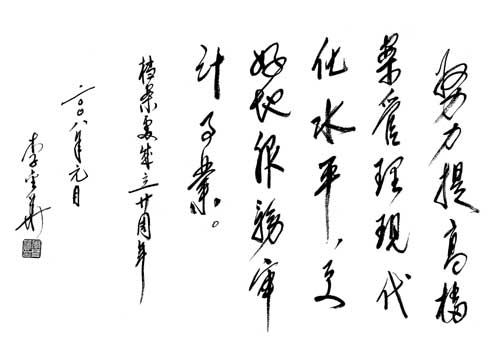 努力提高檔
案管理現代
化水平，更
好地服務审
计事業。
檔案處成立廿周年
二〇〇八年元月
李金華